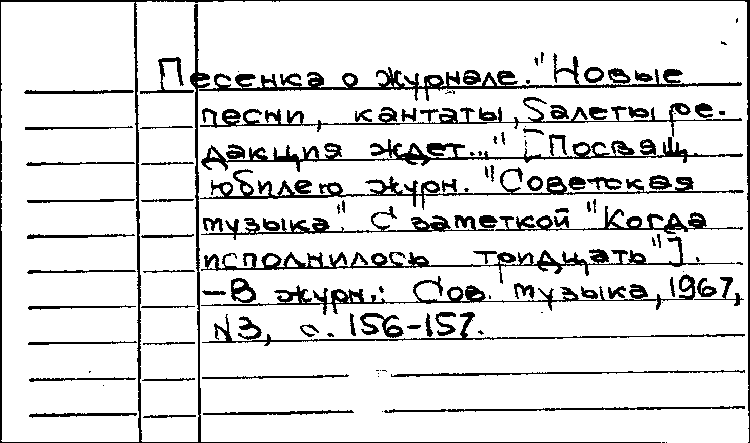 Песенка о журнале. "Новые
песни, кантаты, балеты ре-
дакция ждет..." [Посвящ.
юбилею журн. "Советская
музыка". С заметкой "Когда
исполнилось тридцать"].
— В журн.: Сов. музыка, 1967,
№3, с. 156-157.